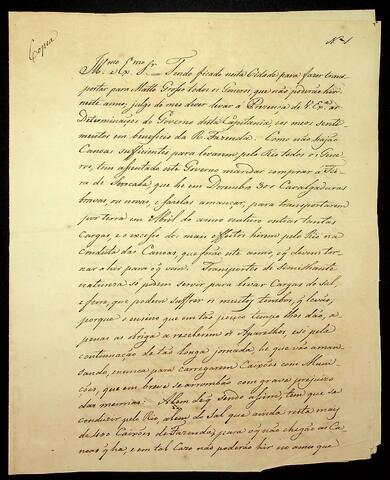 Copia
Nº 1
Illmo. e Exmo. Sr. Tendo ficado nesta Cidade para fazer trans-
portar para Matto Grosso todos os Generos, que não poderão hir
neste anno, julgo do meo dever levar á Prezença de V. Exª. as
Determinações do Governo desta Capitania, e os meos senti-
mentos em beneficio da R. Fazenda. Como não hajão
Canoas sufficientes para levarem pelo Rio todos os Gene-
ros, tem assentado este Governo mandar comprar á Fei-
ra de Sorocaba, que he em Dezembro 300 Cavalgaduras
bravas, ou novas, e fazelas amançar, para transportarem
por terra em Abril do anno vindouro outras tantas
Cargas, e o excesso do mais effeitos hirem pelo Rio na
conduta das Canoas, que forão este anno, e q. devem tor-
nar a hir para o q. vem. Transportes de semelhante
natureza só podem servir para levar Cargas de sal,
e ferro, que podem suffrer os muitos tombos, q. levão,
porque o ensino que em tão pouco tempo lhes dão, a
penas as obriga a receberem os Aparelhos, e só pela
continuação de tão longa jornada, he que vão aman-
sando, e nunca para carregarem Caixões com Muni-
ções, que em breve se arrombão com grave prejuizo
das mesmas: Alem de q. sendo assim, tem que se
conduzir pelo Rio, alem do Sal que ainda resta mais
de 400 Caixões de Fazenda, para o q. não chegão as Ca-
noas q. ha, e em tal cazo não poderão hir no anno que